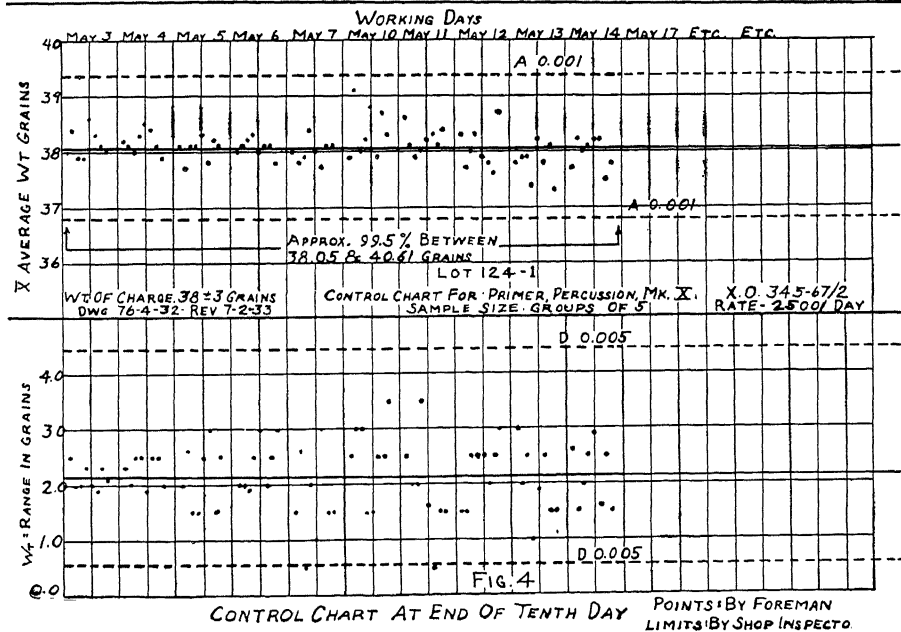 WORKING DAYS
MAY 3 MAY 4 MAY 5 MAY 6 MAY 7 MAY 10 MAY 11 MAY 12 MAY 13 MAY 14 MAY 17 ETC. ETC.
40
A 0.001
39
38
37
A 0.001
36
X̄ AVERAGE WT GRAINS
APPROX. 99.5% BETWEEN
38.05 & 40.61 GRAINS
LOT 124-1
WT OF CHARGE. 38 ±3 GRAINS
DWG 76-4-32. REV 7-2-33
CONTROL CHART FOR PRIMER, PERCUSSION, MK. X.
SAMPLE SIZE. GROUPS OF 5
X.O. 345-67/2
RATE - 2500/ DAY
D 0.005
4.0
3.0
2.0
1.0
0.0
= RANGE IN GRAINS
D 0.005
FIG. 4
CONTROL CHART AT END OF TENTH DAY
POINTS: BY FOREMAN
LIMITS: BY SHOP INSPECTO